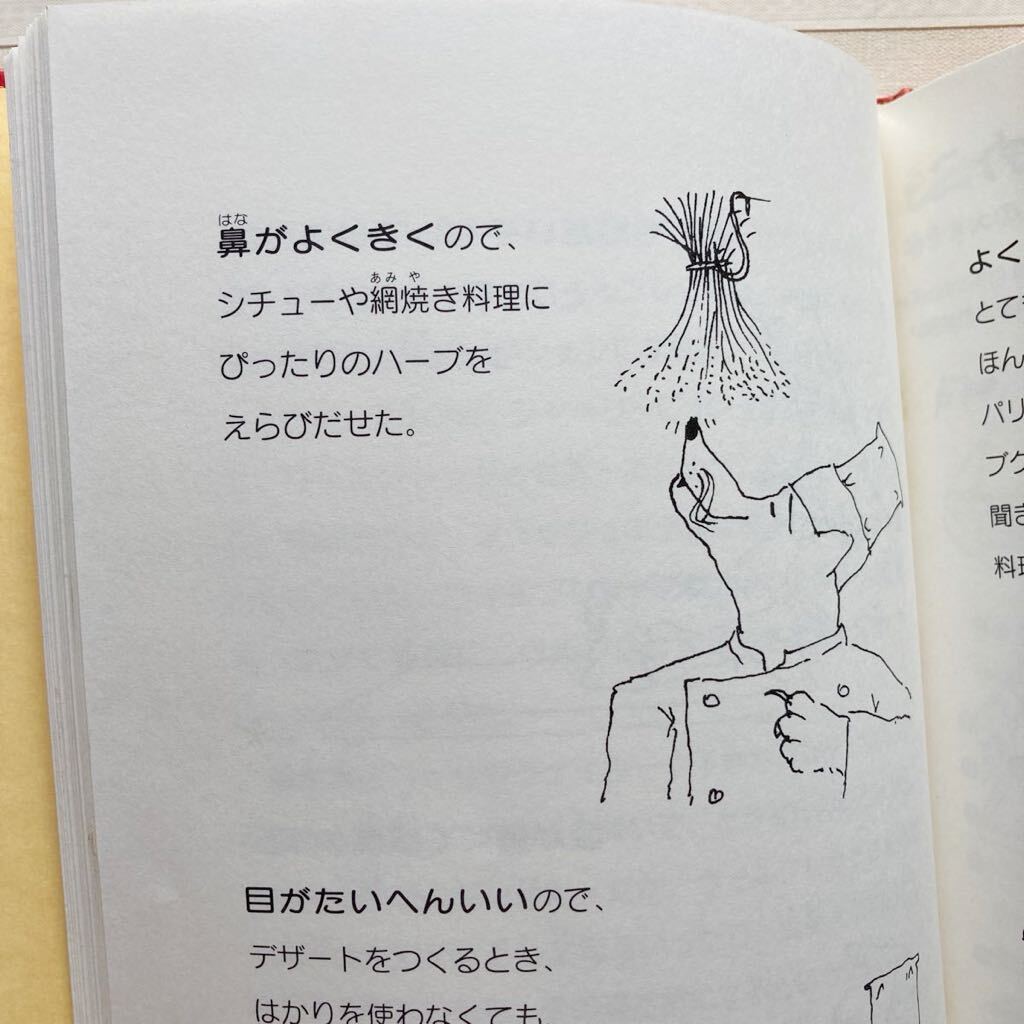 鼻がよくきくので、
シチューや網焼き料理に
ぴったりのハーブを
えらびだせた。
目がたいへんいいので、
デザートをつくるとき、
はかりを使わなくても、
よく
とても
ほん
パリ
ブク
聞き
料理